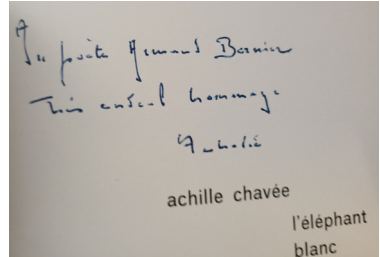 Au poète Armand Bernier
Très cordial hommage
achille chavée
l'éléphant
blanc